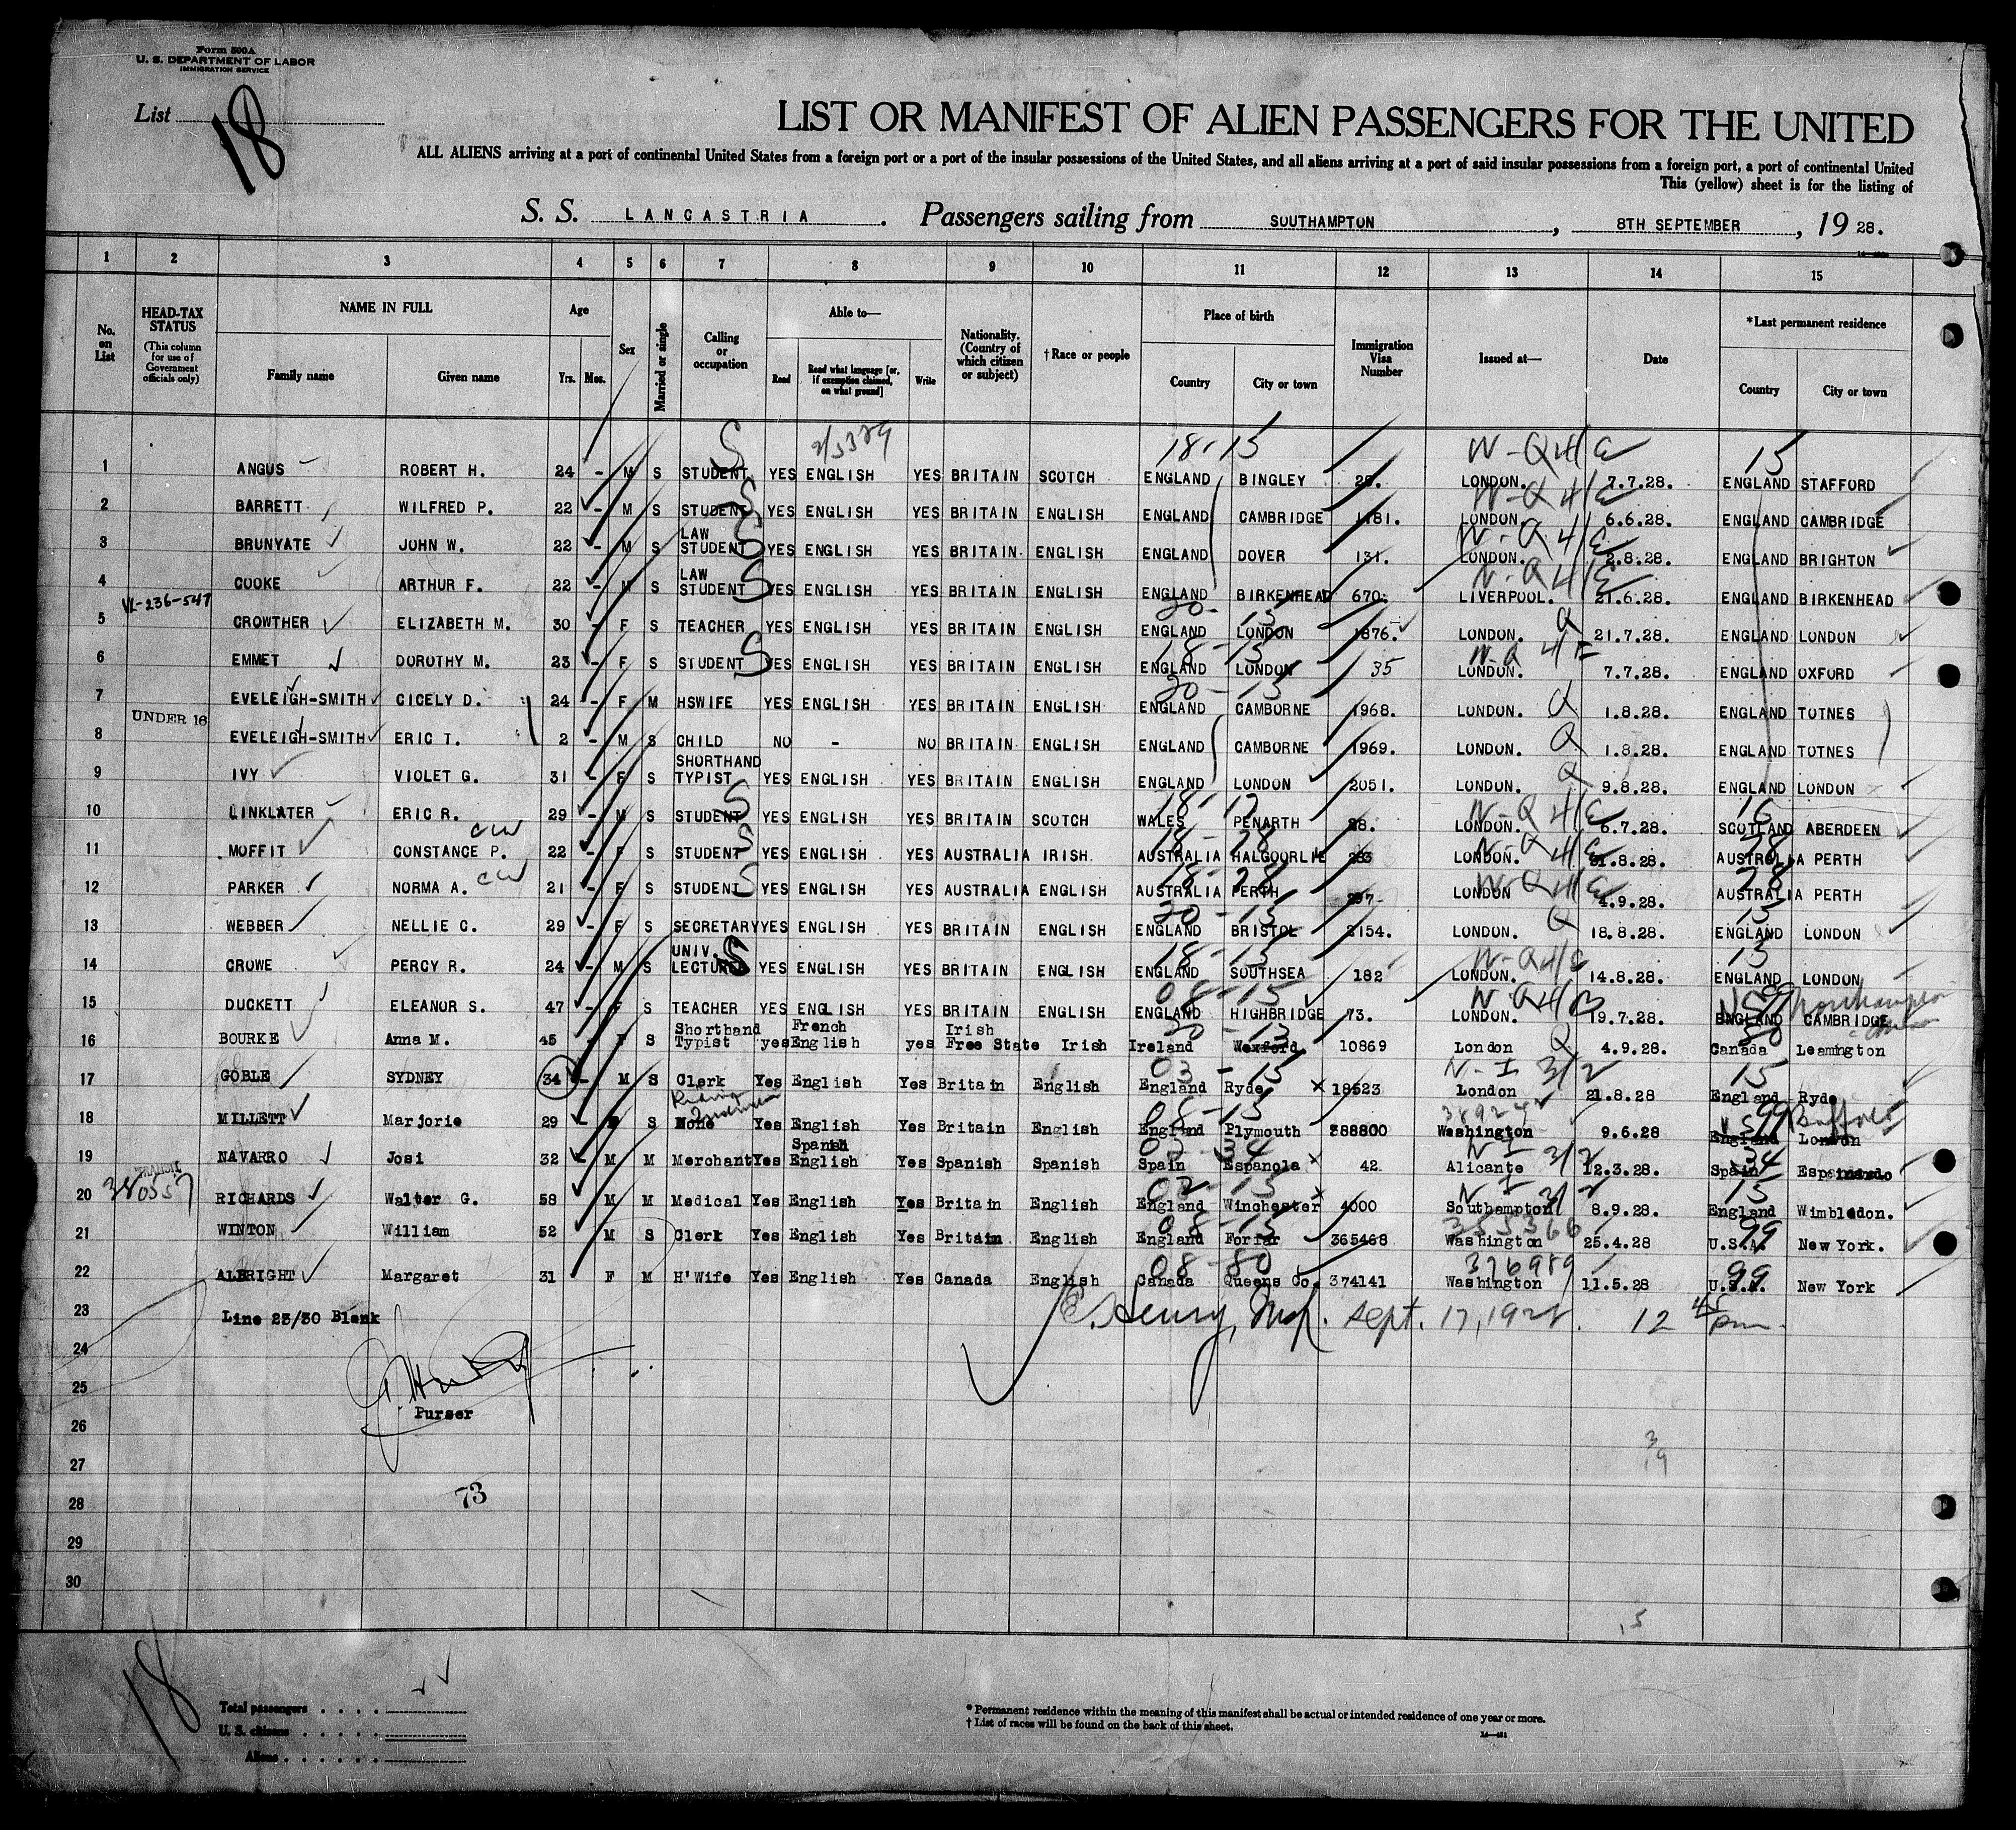 Form 500A
U. S. DEPARTMENT OF LABOR
IMMIGRATION SERVICE
List 18
LIST OR MANIFEST OF ALIEN PASSENGERS FOR THE UNITED
ALL ALIENS arriving at a port of continental United States from a foreign port or a port of the insular possessions of the United States, and all aliens arriving at a port of said insular possessions from a foreign port, a port of continental United
This (yellow) sheet is for the listing of
S. S. LANCASTRIA. Passengers sailing from SOUTHAMPTON, 8TH SEPTEMBER, 19 28.
1 2 3 4 5 6 7 8 9 10 11 12 13 14 15
No. on List
HEAD-TAX STATUS (This column for use of Government officials only)
NAME IN FULL
Family name Given name
Age Yrs. Mos.
Sex
Married or single
Calling or occupation
Able to—
Read Read what language [or, if exemption claimed, on what ground] Write
Nationality. (Country of which citizen or subject)
† Race or people
Place of birth
Country City or town
Immigration Visa Number
Issued at—
Date
*Last permanent residence
Country City or town
1 ANGUS ROBERT H. 24 - M S STUDENT YES ENGLISH YES BRITAIN SCOTCH ENGLAND BINGLEY LONDON. 7.7.28. ENGLAND STAFFORD
2 BARRETT WILFRED P. 22 - M S STUDENT YES ENGLISH YES BRITAIN ENGLISH ENGLAND CAMBRIDGE LONDON. 6.6.28. ENGLAND CAMBRIDGE
3 BRUNYATE JOHN W. 22 - M S LAW STUDENT YES ENGLISH YES BRITAIN ENGLISH ENGLAND DOVER 131. LONDON. 2.8.28. ENGLAND BRIGHTON
4 COOKE ARTHUR F. 22 - M S LAW STUDENT YES ENGLISH YES BRITAIN ENGLISH ENGLAND BIRKENHEAD 670. LIVERPOOL. 21.6.28. ENGLAND BIRKENHEAD
5 CROWTHER ELIZABETH M. 30 - F S TEACHER YES ENGLISH YES BRITAIN ENGLISH ENGLAND LONDON 1876. LONDON. 21.7.28. ENGLAND LONDON
6 EMMET DOROTHY M. 23 - F S STUDENT YES ENGLISH YES BRITAIN ENGLISH ENGLAND LONDON 35 LONDON. 7.7.28. ENGLAND OXFORD
7 EVELEIGH-SMITH CICELY D. 24 - F M HSWIFE YES ENGLISH YES BRITAIN ENGLISH ENGLAND CAMBORNE 1968. LONDON. 1.8.28. ENGLAND TOTNES
UNDER 16
8 EVELEIGH-SMITH ERIC T. 2 - M S CHILD NO - NO BRITAIN ENGLISH ENGLAND CAMBORNE 1969. LONDON. 1.8.28. ENGLAND TOTNES
9 IVY VIOLET G. 31 - F S SHORTHAND TYPIST YES ENGLISH YES BRITAIN ENGLISH ENGLAND LONDON 2051. LONDON. 9.8.28. ENGLAND LONDON
10 LINKLATER ERIC R. 29 - M S STUDENT YES ENGLISH YES BRITAIN SCOTCH WALES PENARTH LONDON. 6.7.28. SCOTLAND ABERDEEN
11 MOFFIT CONSTANCE P. 22 - F S STUDENT YES ENGLISH YES AUSTRALIA IRISH. AUSTRALIA HALGOORLIE LONDON. AUSTRALIA PERTH
12 PARKER NORMA A. 21 - F S STUDENT YES ENGLISH YES AUSTRALIA ENGLISH AUSTRALIA PERTH LONDON 4.9.28. AUSTRALIA PERTH
13 WEBBER NELLIE C. 29 - F S SECRETARY YES ENGLISH YES BRITAIN ENGLISH ENGLAND BRISTOL 2154. LONDON. 18.8.28. ENGLAND LONDON
14 CROWE PERCY R. 24 - M S UNIV. LECTURER YES ENGLISH YES BRITAIN ENGLISH ENGLAND SOUTHSEA 182 LONDON. 14.8.28. ENGLAND LONDON
15 DUCKETT ELEANOR S. 47 - F S TEACHER YES ENGLISH YES BRITAIN ENGLISH ENGLAND HIGHBRIDGE 73. LONDON. 19.7.28. ENGLAND CAMBRIDGE Northampton
16 BOURKE Anna M. 45 F S Shorthand Typist yes French English yes Irish Free State Irish Ireland Wexford 10869 London 4.9.28. Canada Leamington
17 GOBLE SYDNEY 34 - M S Clerk Yes English Yes Britain English England Ryde 18623 London 21.8.28 England Ryde
18 MILLETT Marjorie 29 - F S None Yes English Yes Britain English England Plymouth 288800 Washington 9.6.28 England London Buffalo
19 NAVARRO Josi 32 - M M Merchant Yes Spanish English Yes Spanish Spanish Spain Espanola 42 Alicante 12.3.28. Spain
20 RICHARDS Walter G. 58 M M Medical Yes English Yes Britain English England Winchester 4000 Southampton 8.9.28. England Wimbledon.
21 WINTON William 52 M S Clerk Yes English Yes Britain English England Forfar 365468 Washington 25.4.28 U.S.A. New York.
22 ALBRIGHT Margaret 31 F M H'Wife Yes English Yes Canada English Canada Queens Co. 374141 Washington 11.5.28 U.S.A. New York
23 Line 23/30 Blank
E. Henry, Sept. 17, 1928. 12 45 pm.
24
25
Purser
26
27
73
28
29
30
18
Total passengers
U. S. citizens
Aliens
* Permanent residence within the meaning of this manifest shall be actual or intended residence of one year or more.
† List of races will be found on the back of this sheet.